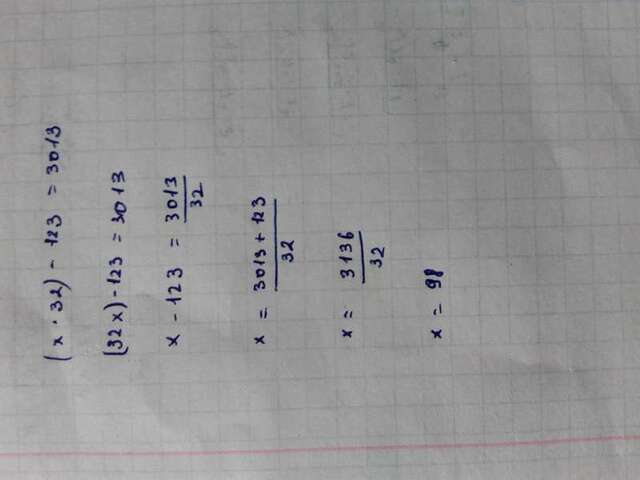 (x · 32) - 123 = 3013
(32x) - 123 = 3013
x - 123 = 3013/32
x = 3013 + 123/32
x = 3136/32
x = 98